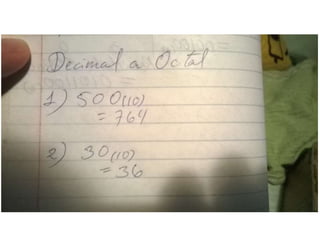 Decimal a Octal
1) 500(10)
= 764
2) 30(10)
= 36